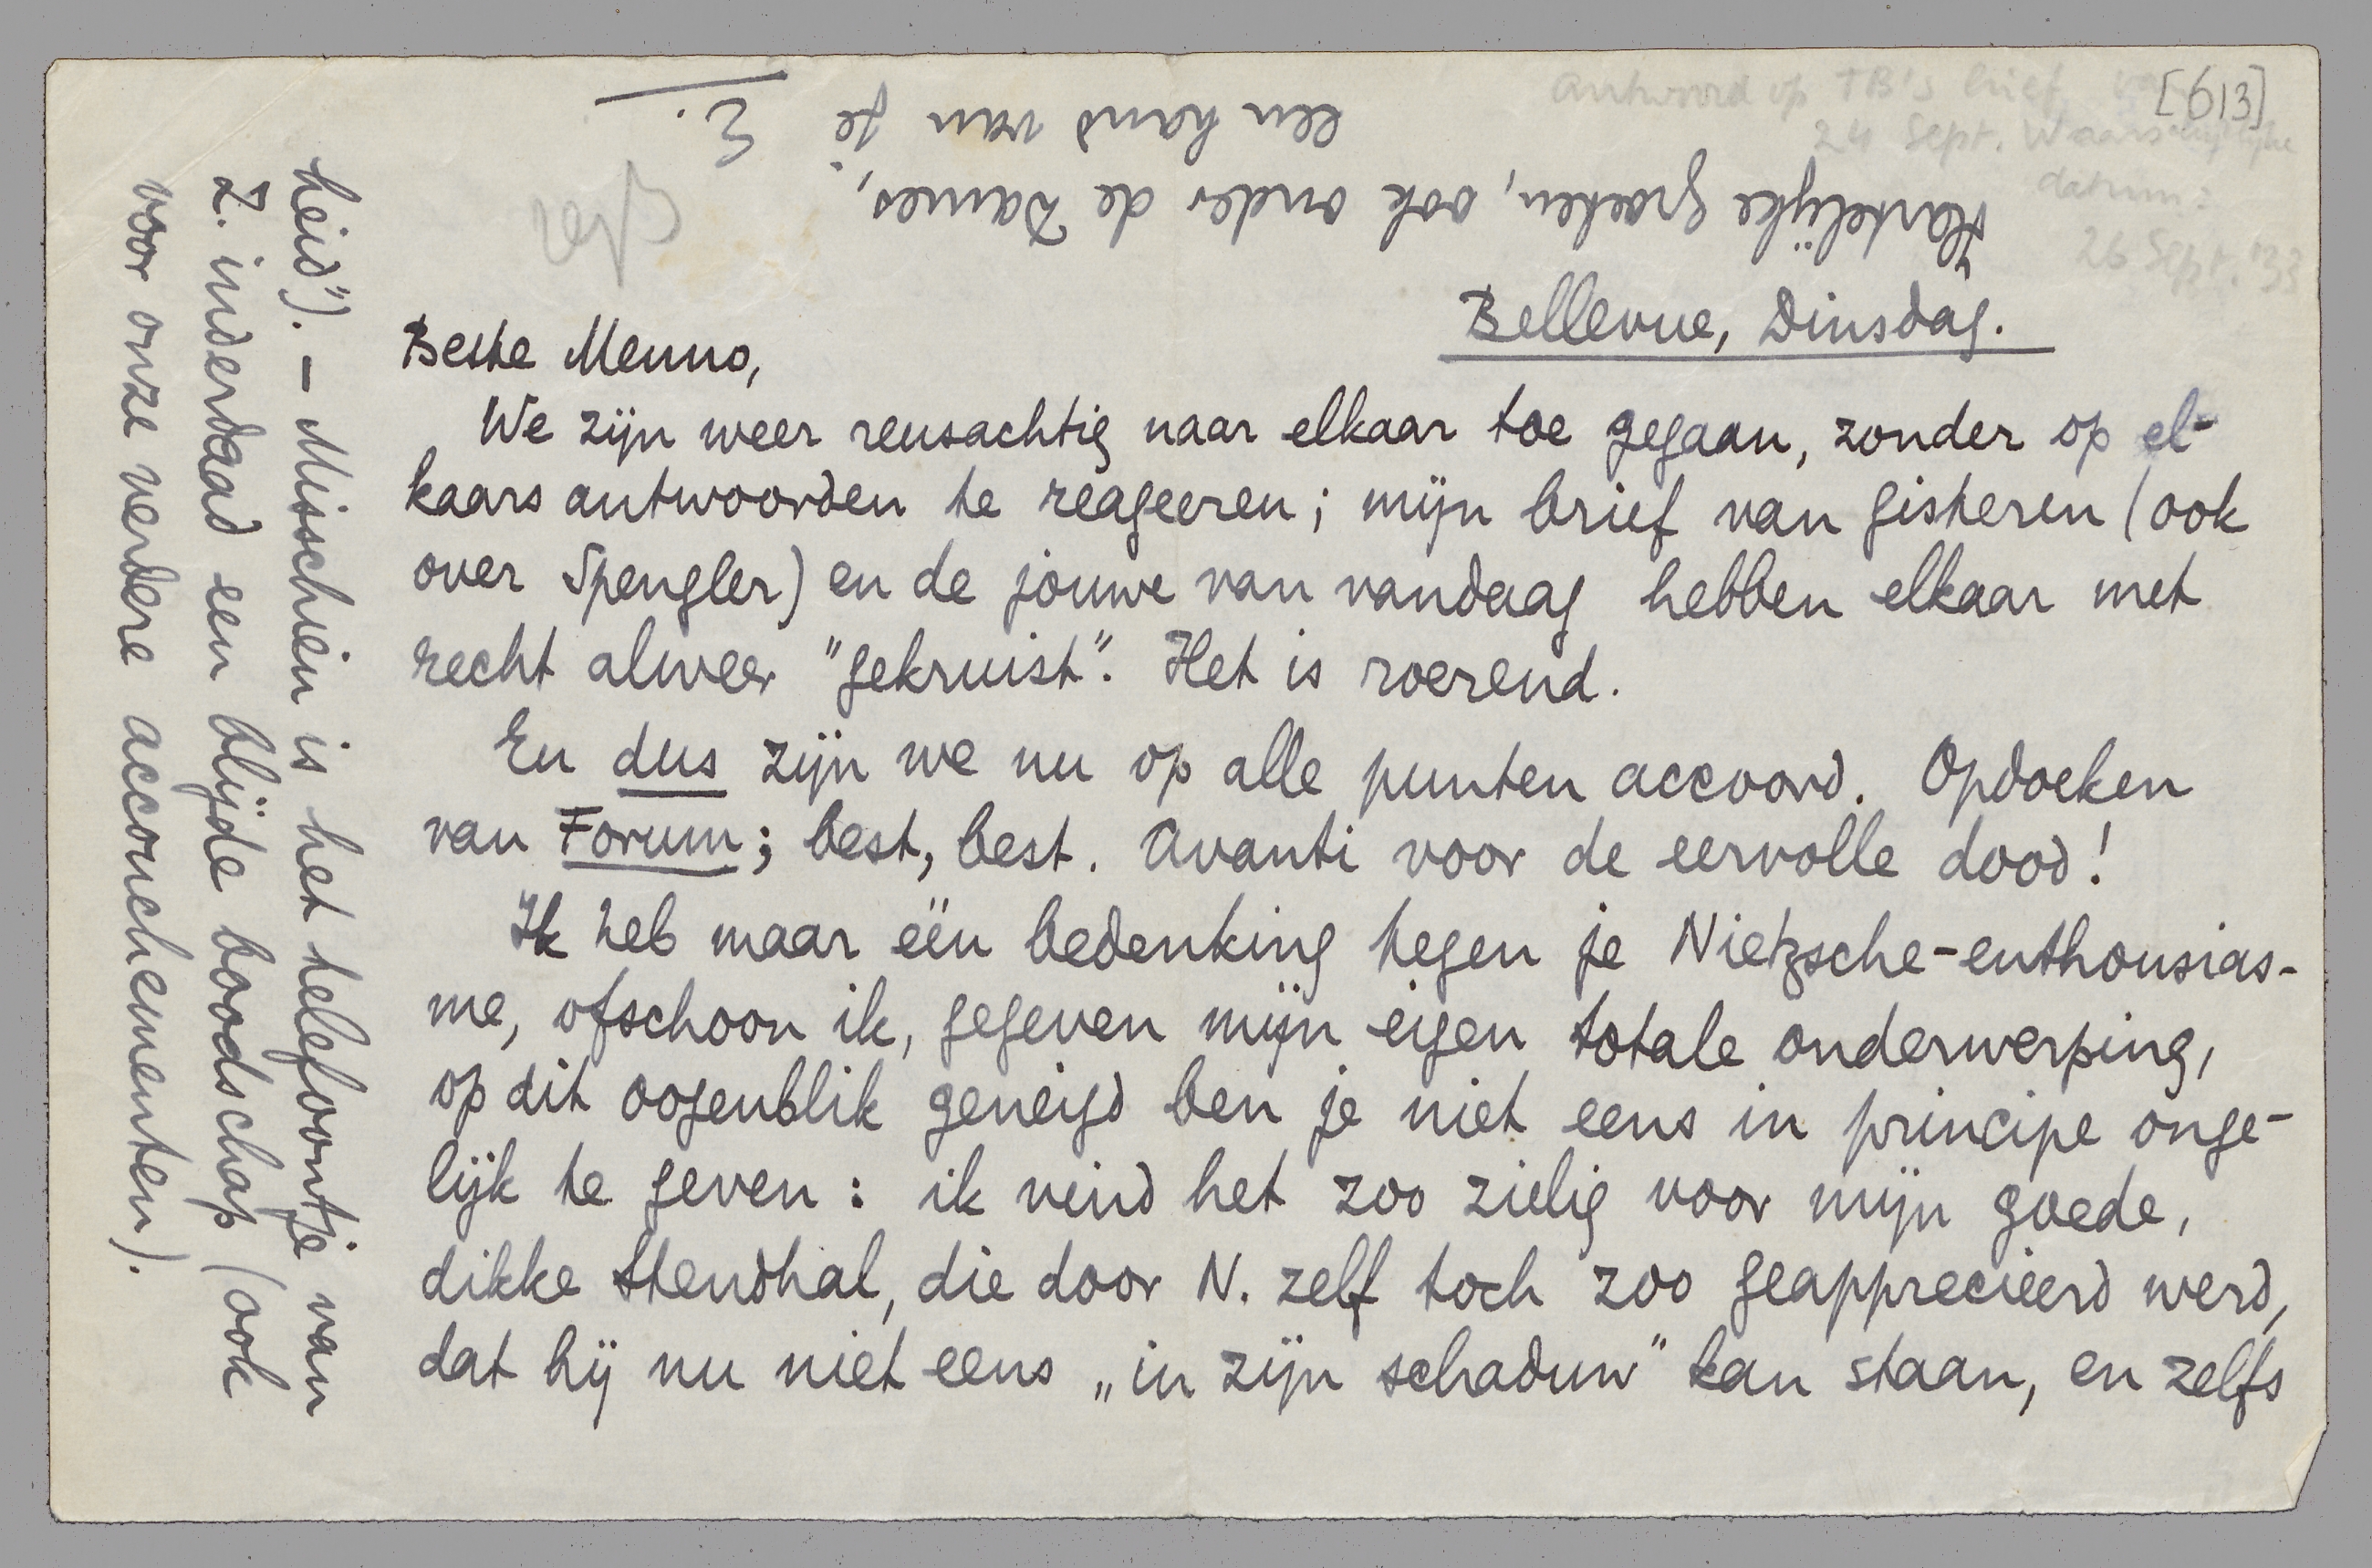 [613]
Antwoord op TB's brief van
24 Sept. Waarschijnlijke
datum:
26 Sept. '33
Bellevue, Dinsdag.
Beste Menno,
We zijn weer reusachtig naar elkaar toe gegaan, zonder op el-
kaars antwoorden te reageeren; mijn brief van gisteren (ook
over Spengler) en de jouwe van vandaag hebben elkaar met
recht alweer "gekruist". Het is roerend.
En dus zijn we nu op alle punten accoord. Opdoeken
van Forum; best, best. Avanti voor de eervolle dood!
Ik heb maar één bedenking tegen je Nietzsche-enthousias-
me, ofschoon ik, gegeven mijn eigen totale onderwerping,
op dit oogenblik geneigd ben je niet eens in principe onge-
lijk te geven: ik vind het zoo zielig voor mijn goede,
dikke Stendhal, die door N. zelf toch zoo geapprecieerd werd,
dat hij nu niet eens „in zijn schaduw" kan staan, en zelfs
heid"). — Misschien is het telefoontje van
Z. inderdaad een blijde boodschap (ook
voor onze verdere accouchementen).
Hartelijke groeten, ook onder de dames,
een hand van je
E.